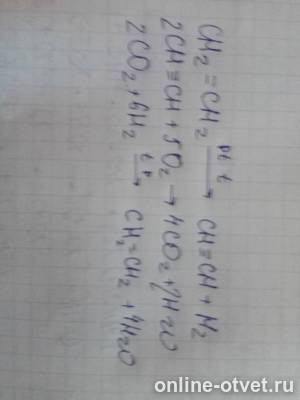 CH₂ = CH₂ —Pt, t→ CH≡CH + H₂
2CH≡CH + 5O₂ → 4CO₂ + 2H₂O
2CO₂ + 6H₂ —t, p→ CH₂=CH₂ + 4H₂O
online-otvet.ru